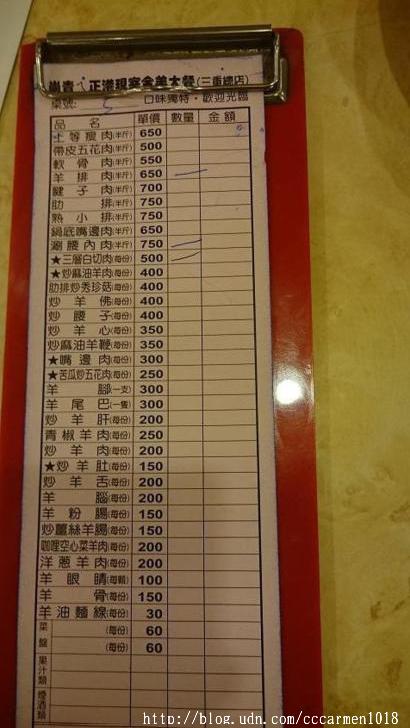 尚青 正港現宰全羊大餐(三重總店)
桌號: 5 口味獨特·歡迎光臨
品名 單價 數量 金額
上等瘦肉(半斤) 650
帶皮五花肉(半斤) 500
軟骨肉(半斤) 550
羊排肉(半斤) 650
腱子肉(半斤) 700
肋排(半斤) 750
熟小排(半斤) 750
鍋底嘴邊肉(半斤) 650
涮腰內肉(半斤) 750
★三層白切肉(每份) 500
★炒麻油羊肉(每份) 400
肋排炒秀珍菇(每份) 400
炒羊佛(每份) 400
炒腰子(每份) 400
炒羊心(每份) 350
炒麻油羊鞭(每份) 350
★嘴邊肉(每份) 300
★苦瓜炒五花肉(每份) 250
羊腳(一支) 300
羊尾巴(一隻) 300
炒羊肝(每份) 200
青椒羊肉(每份) 250
炒羊肉(每份) 200
★炒羊肚(每份) 150
炒羊舌(每份) 200
羊腦(每份) 200
羊粉腸(每份) 150
炒薑絲羊腸(每份) 150
咖哩空心菜羊肉(每份) 200
洋蔥羊肉(每份) 200
羊眼睛(每顆) 100
羊骨(每份) 150
羊油麵線(每份) 30
菜盤 (每份) 60
(每份) 60
果汁類
煙酒類
http://blog.udn.com/cccarmen1018